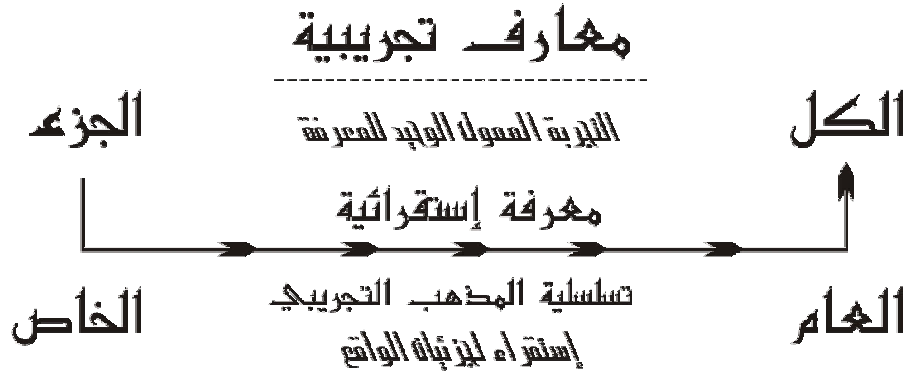 معارف تجريبية
الكل
الجزء
التجربة الممول الوحيد للمعرفة
معرفة إستقرائية
العام
الخاص
تسلسلية المذهب التجريبي
إستقراء لجزئيات الواقع